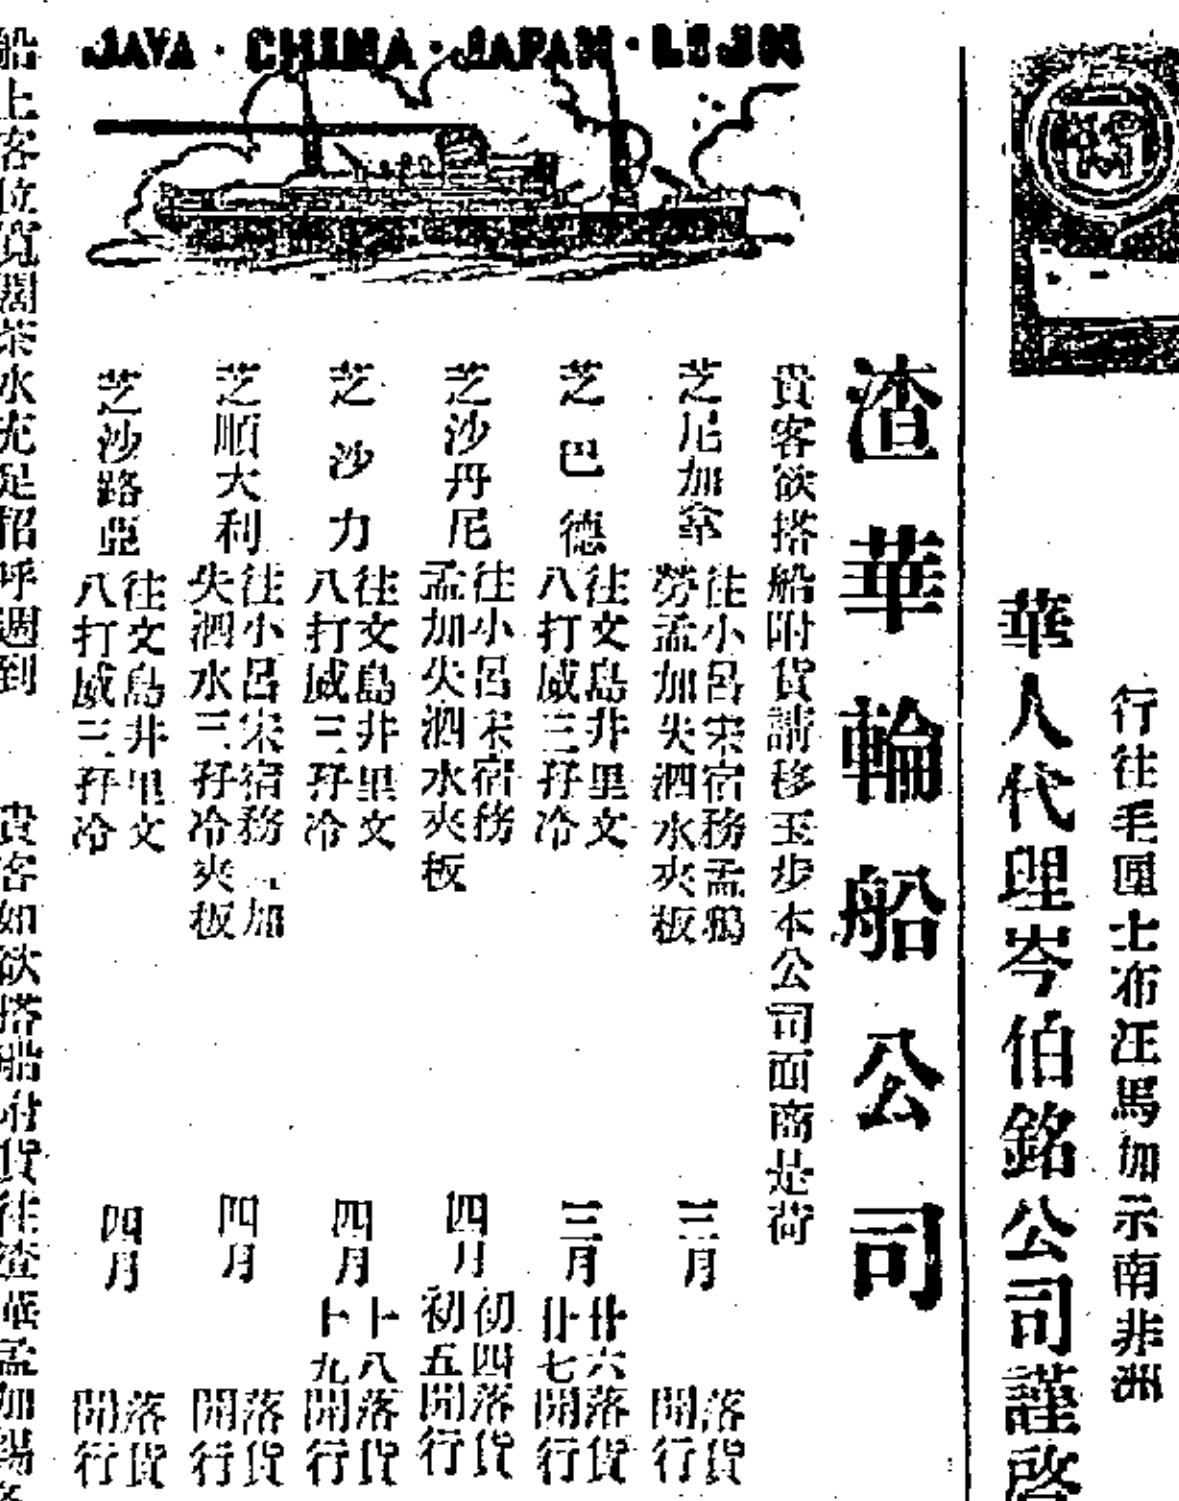 JAVA · CHINA · JAPAN · LIJN
行往毛里士布汪馬加示南非洲
華人代理岑伯銘公司謹啓
渣華輪船公司
貴客欲搭船附貨請移玉步本公司面商是荷
芝尼加拿 往小呂宋宿務孟鴉 勞孟加失泗水夾板 三月 落貨 開行
芝巴德 往文島井里文 八打威三孖冷 三月 廿六落貨 廿七開行
芝沙丹尼 往小呂宋宿務 孟加失泗水夾板 四月 初四落貨 初五開行
芝沙力 往文島井里文 八打威三孖冷 四月 十八落貨 十九開行
芝順大利 往小呂宋宿務 加 失泗水三孖冷夾板 四月 落貨 開行
芝沙路亞 往文島井里文 八打威三孖冷 四月 落貨 開行
船上客位寬闊茶水充足招呼週到 貴客如欲搭船附貨往渣華孟加錫